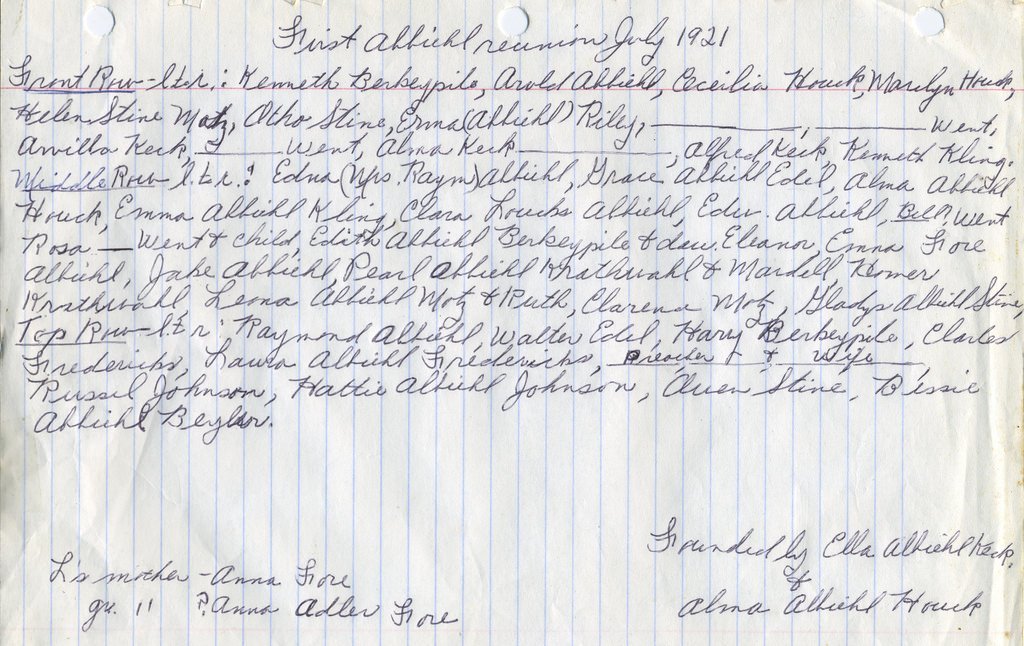 First Abbiehl reunion July 1921
Front Row - l.t.r.: Kenneth Berkeypile, Arold Abbiehl, Cecilia Houck, Marilyn Houck,
Helen Stine Motz, Otho Stine, Erma (Abbiehl) Riley, ________, ________ Went,
Arvilla Keck, ____ Went, Alma Keck ________, Alfred Keck, Kenneth Kling.
Middle Row l.t.r.: Edna (Mrs. Raym) Abbiehl, Grace Abbiehl Edel, Alma Abbiehl
Houck, Emma Abbiehl Kling, Clara Loucks Abbiehl, Edw. Abbiehl, Bill?, Went
Rosa — Went & child, Edith Abbiehl Berkeypile & dau, Eleanor, Emma Fore
Abbiehl, Jake Abbiehl, Pearl Abbiehl Krathwohl & Mardell, Homer
Krathwohl, Leona Abbiehl Motz & Ruth, Clarence Motz, Gladys Abbiehl Stine,
Top Row - l.t.r: Raymond Abbiehl, Walter Edel, Harry Berkeypile, Charles
Fredericks, Laura Abbiehl Fredericks, Preacher + + Wife,
Russel Johnson, Hattie Abbiehl Johnson, Owen Stine, Bessie
Abbiehl Beyler.
Founded by Ella Abbiehl Keck,
&
Alma Abbiehl Houck
L's mother - Anna Fore
gr. " ? Anna Adler Fore